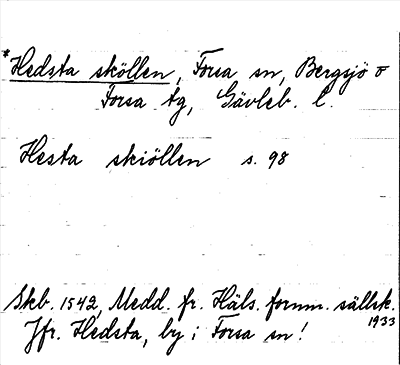 *Hedsta sköllen, Forsa sn, Bergsjö o
Forsa tg, Gävleb. l.
Hesta skiöllen s. 98
Skb. 1542, Medd. fr. Häls. fornm. sällsk.
1933
Jfr. Hedsta, by i Forsa sn!